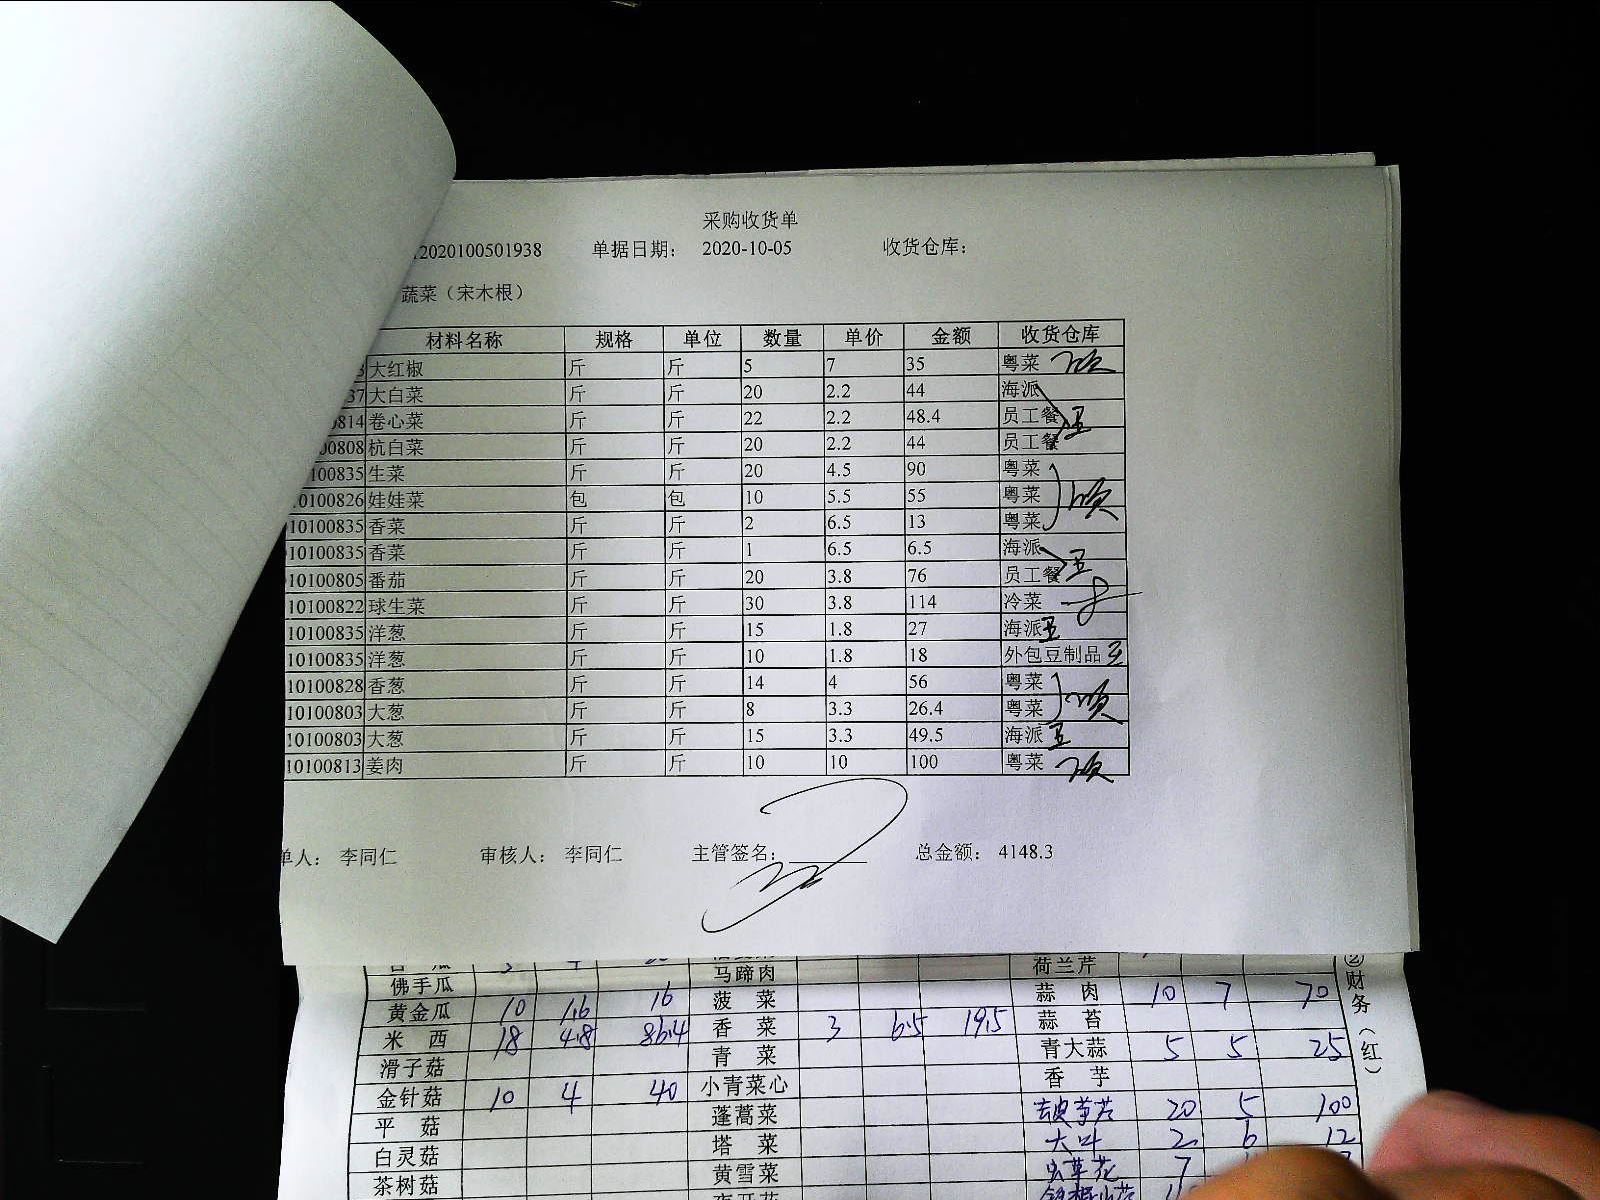 采购收货单
12020100501938 单据日期: 2020-10-05 收货仓库:
蔬菜（宋木根）
材料名称 规格 单位 数量 单价 金额 收货仓库
3 大红椒 斤 斤 5 7 35 粤菜
37 大白菜 斤 斤 20 2.2 44 海派
0814 卷心菜 斤 斤 22 2.2 48.4 员工餐
00808 杭白菜 斤 斤 20 2.2 44 员工餐
100835 生菜 斤 斤 20 4.5 90 粤菜
10100826 娃娃菜 包 包 10 5.5 55 粤菜
10100835 香菜 斤 斤 2 6.5 13 粤菜
10100835 香菜 斤 斤 1 6.5 6.5 海派
10100805 番茄 斤 斤 20 3.8 76 员工餐
10100822 球生菜 斤 斤 30 3.8 114 冷菜
10100835 洋葱 斤 斤 15 1.8 27 海派
10100835 洋葱 斤 斤 10 1.8 18 外包豆制品
10100828 香葱 斤 斤 14 4 56 粤菜
10100803 大葱 斤 斤 8 3.3 26.4 粤菜
10100803 大葱 斤 斤 15 3.3 49.5 海派
10100813 姜肉 斤 斤 10 10 100 粤菜
单人: 李同仁 审核人: 李同仁 主管签名: 总金额: 4148.3
马蹄肉 荷兰芹
佛手瓜 菠菜 蒜肉 10 7 70
黄金瓜 10 1.6 16 香菜 3 6.5 19.5 蒜苔
米西 18 4.8 86.4 青菜 青大蒜 5 5 25
滑子菇 小青菜心 香芋
金针菇 10 4 40 蓬蒿菜 20 5 100
平菇 塔菜 大叶 2 6 12
白灵菇 黄雪菜 虫草花 7
茶树菇
②财务（红）